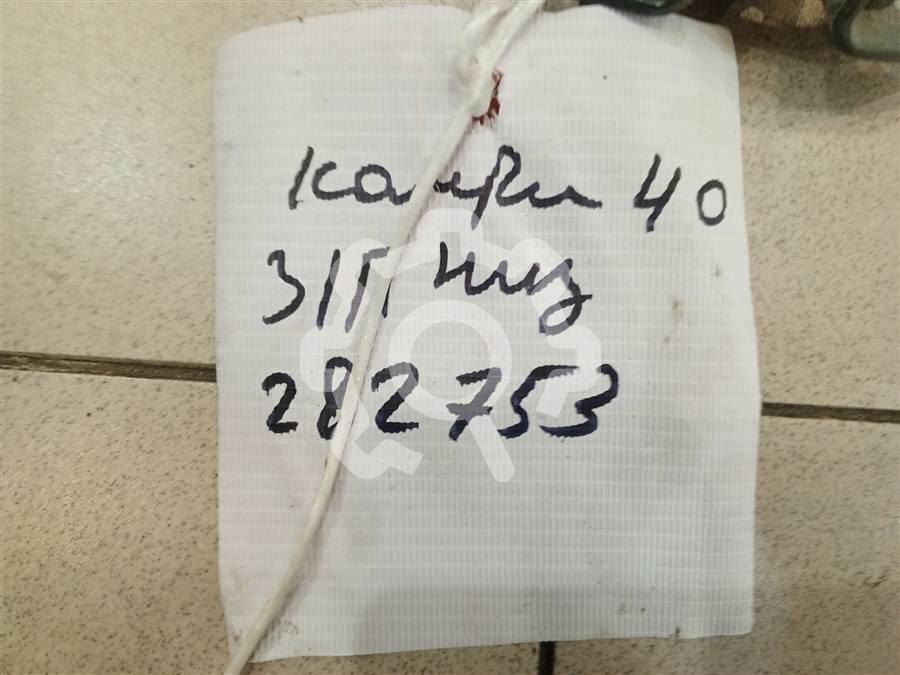 Камри 40
ЗПП низ
282753